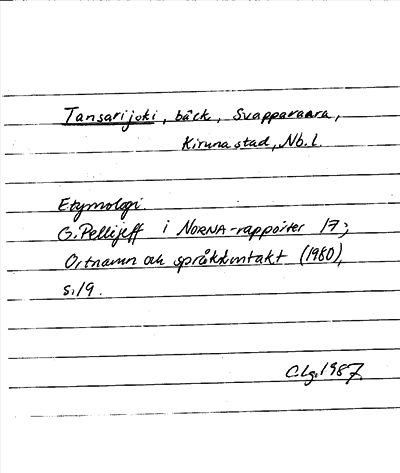 Tansarijoki, bäck, Svappavaara,
Kiruna stad, Nb. l.
Etymologi
G. Pellijeff i NORNA-rapporter 17;
Ortnamn och språkkontakt (1980),
s. 19.
C.Lg. 1987